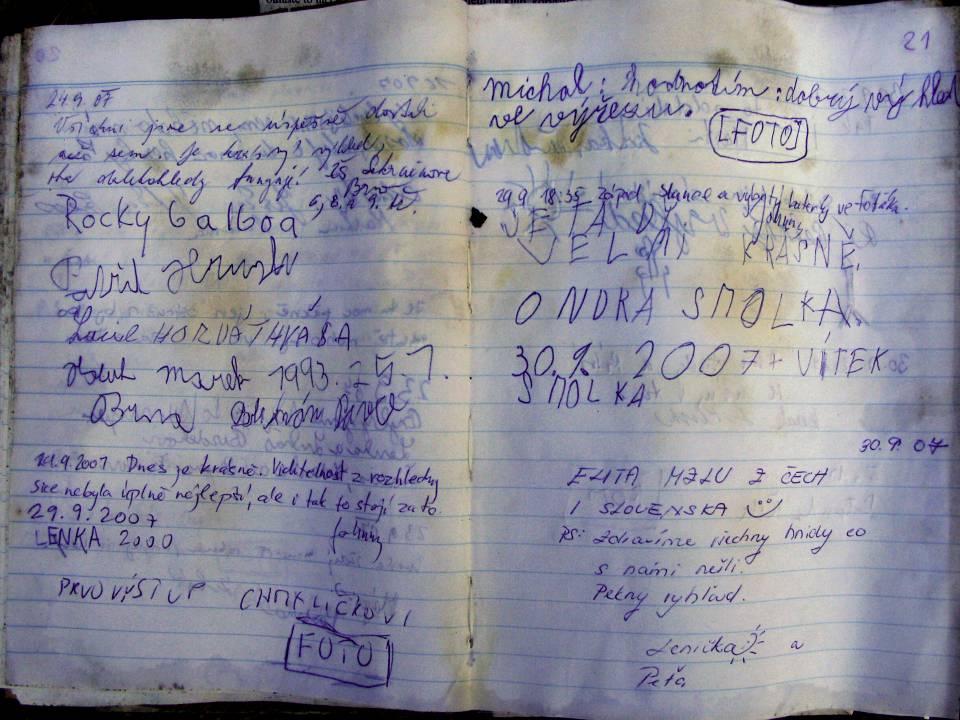 20
24.9. 07
Všichni jsme se úspěšně dostali
až sem. Je krásný výhled
na dalekohledy fungují! ZŠ
Brno
Rocky balboa
Lucie HORVÁTHOVÁ
marek 1993. 25.7.
Brno
29.9.2007 Dnes je krásně. Viditelnost z rozhledny
sice nebyla úplně nejlepší, ale i tak to stojí za to.
29.9.2007
LENKA 2000
PRVOVÝSTUP CHMELÍČKOVI
FOTO
21
michal: hodnotím: dobrý výhled
ve výřezu.
[FOTO]
29.9. 18:35 západ slunce a vybitý baterky ve foťáku.
JE TADY
VELMI KRÁSNĚ.
ONDRA SMOLKA.
30.9. 2007 + VÍTEK
SMOLKA
30.9. 07
ELITA MZLU Z ČECH
I SLOVENSKA
PS: Zdravíme všechny hnidy co
s námi nešli.
Pekny vyhlad.
Lenička a
Peťa